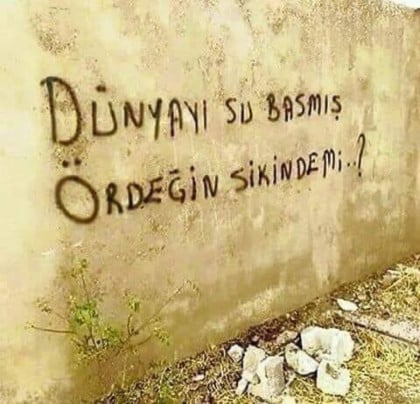 DÜNYAYI SU BASMIŞ
ÖRDEĞİN SİKİNDEMİ..?